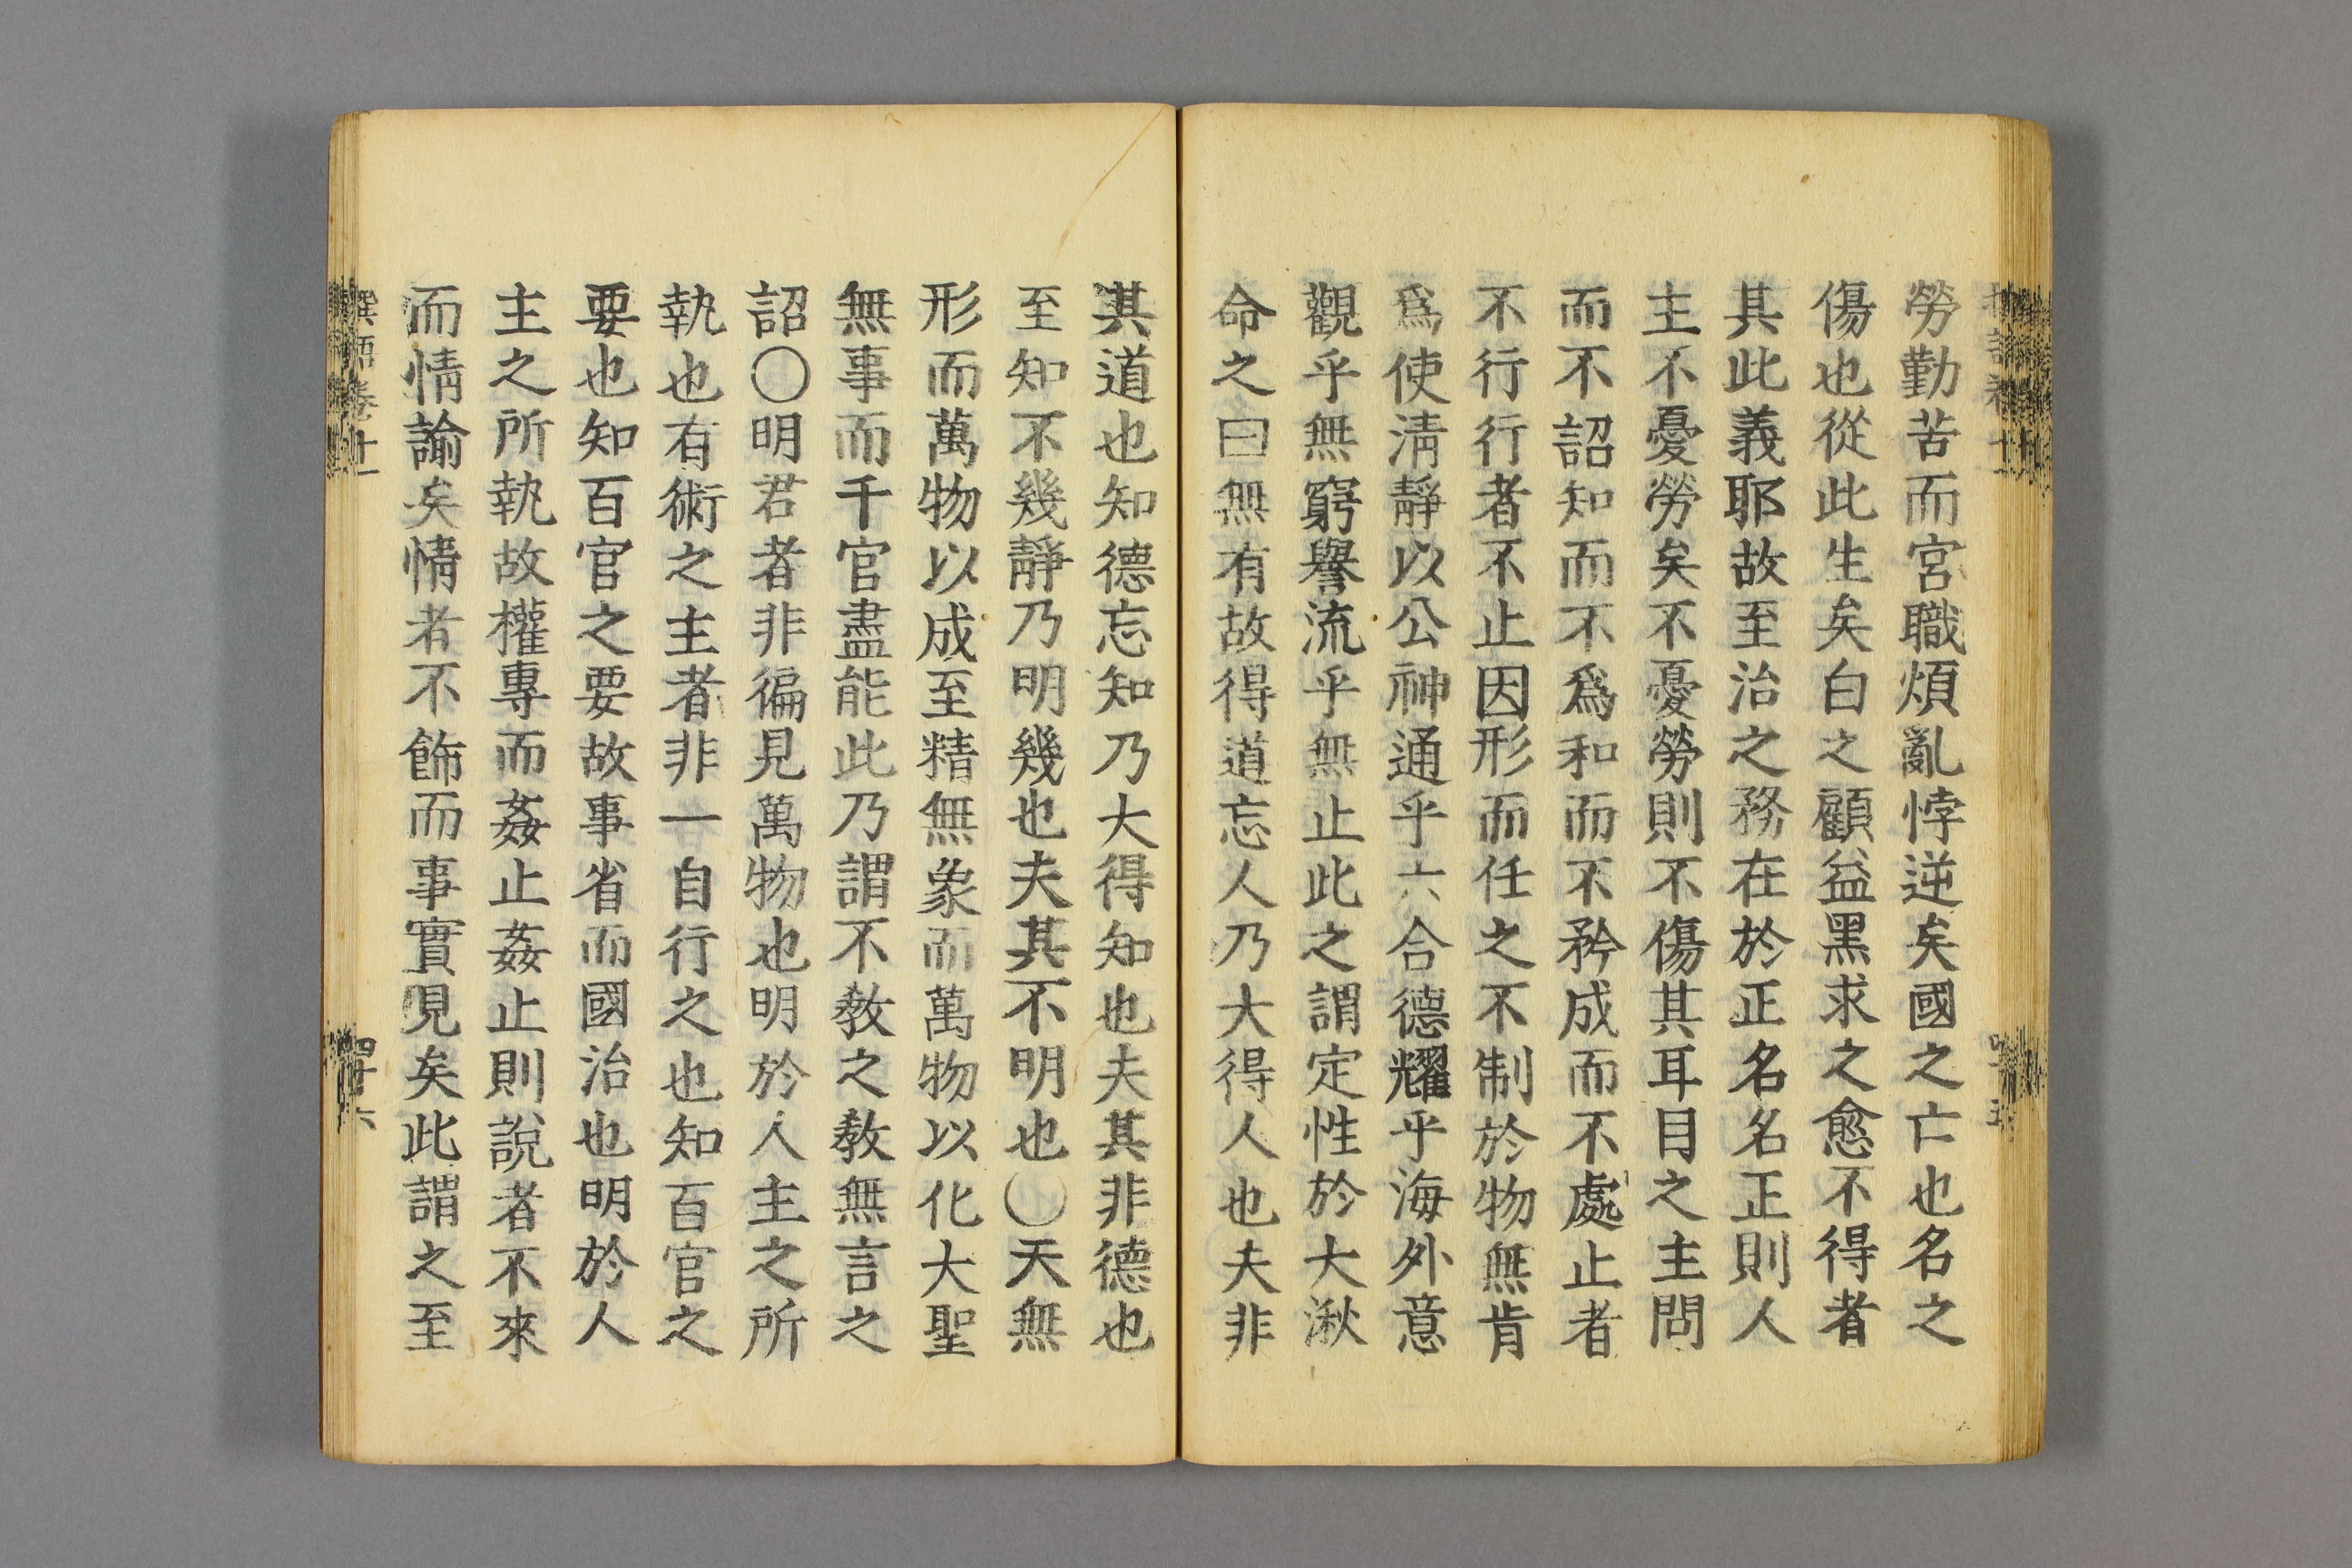 勞勤苦而宮職煩亂悖逆矣國之亡也名之
傷也從此生矣白之顧益黑求之愈不得者
其此義耶故至治之務在於正名名正則人
主不憂勞矣不憂勞則不傷其耳目之主問
而不詔知而不爲和而不矜成而不處止者
不行行者不止因形而任之不制於物無肯
爲使淸靜以公神通乎六合德耀乎海外意
觀乎無窮譽流乎無止此之謂定性於大湫
命之曰無有故得道忘人乃大得人也夫非
其道也知德忘知乃大得知也夫其非德也
至知不幾靜乃明幾也夫其不明也〇天無
形而萬物以成至精無象而萬物以化大聖
無事而千官盡能此乃謂不敎之敎無言之
詔〇明君者非徧見萬物也明於人主之所
執也有術之主者非一自行之也知百官之
要也知百官之要故事省而國治也明於人
主之所執故權專而姦止姦止則說者不來
而情諭矣情者不飾而事實見矣此謂之至
卷十一
四十六